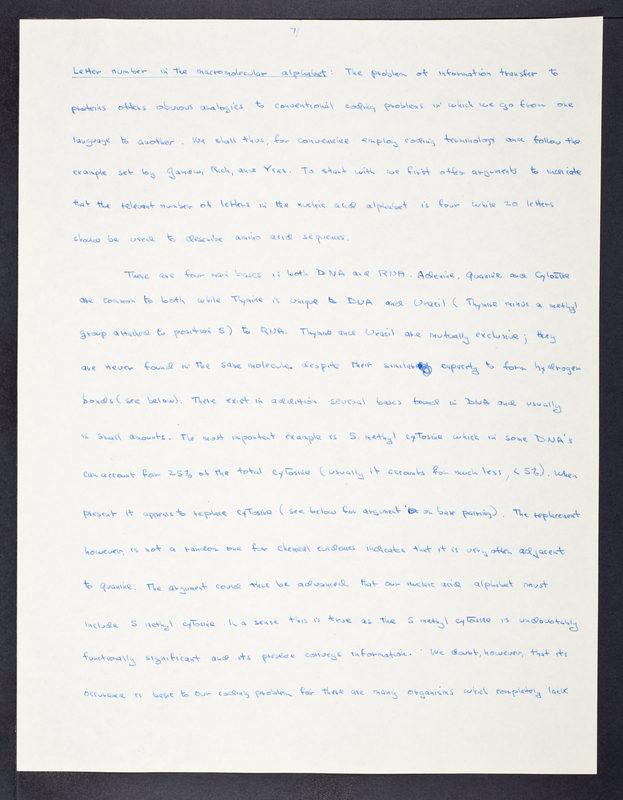 7/
Letter number in the macromolecular alphabet: The problem of information transfer to
proteins offers obvious analogies to conventional coding problems in which we go from one
language to another. We shall thus, for convenience employ coding terminology and follow the
example set by Gamow, Rich, and Ycas. To start with we first offer arguments to indicate
that the relevant number of letters in the nucleic acid alphabet is four while 20 letters
should be used to describe amino acid sequences.
There are four main bases in both DNA and RNA. Adenine, Guanine and Cytosine
are common to both while Thymine is unique to DNA and Uracil (Thymine minus a methyl
group attached to position 5) to RNA. Thymine and Uracil are mutually exclusive; they
are never found in the same molecule despite their similar capacity to form hydrogen
bonds (see below). There exist in addition several bases found in DNA and usually
in small amounts. The most important example is 5 methyl cytosine which in some DNA's
can account for 25% of the total cytosine (usually it accounts for much less, < 5%). When
present it appears to replace cytosine (see below for argument on base pairing). The replacement
however, is not a random one for chemical evidence indicates that it is very often adjacent
to guanine. The argument could thus be advanced that our nucleic acid alphabet must
include 5 methyl cytosine. In a sense this is true as the 5 methyl cytosine is undoubtably
functionally significant and its presence conveys information. We doubt, however, that its
occurence is basic to our coding problem for there are many organisms which completely lack